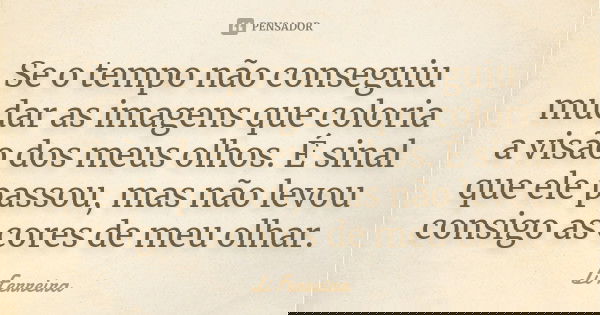 PENSADOR
Se o tempo não conseguiu
mudar as imagens que coloria
a visão dos meus olhos. É sinal
que ele passou, mas não levou
consigo as cores de meu olhar.
Li Ferreira